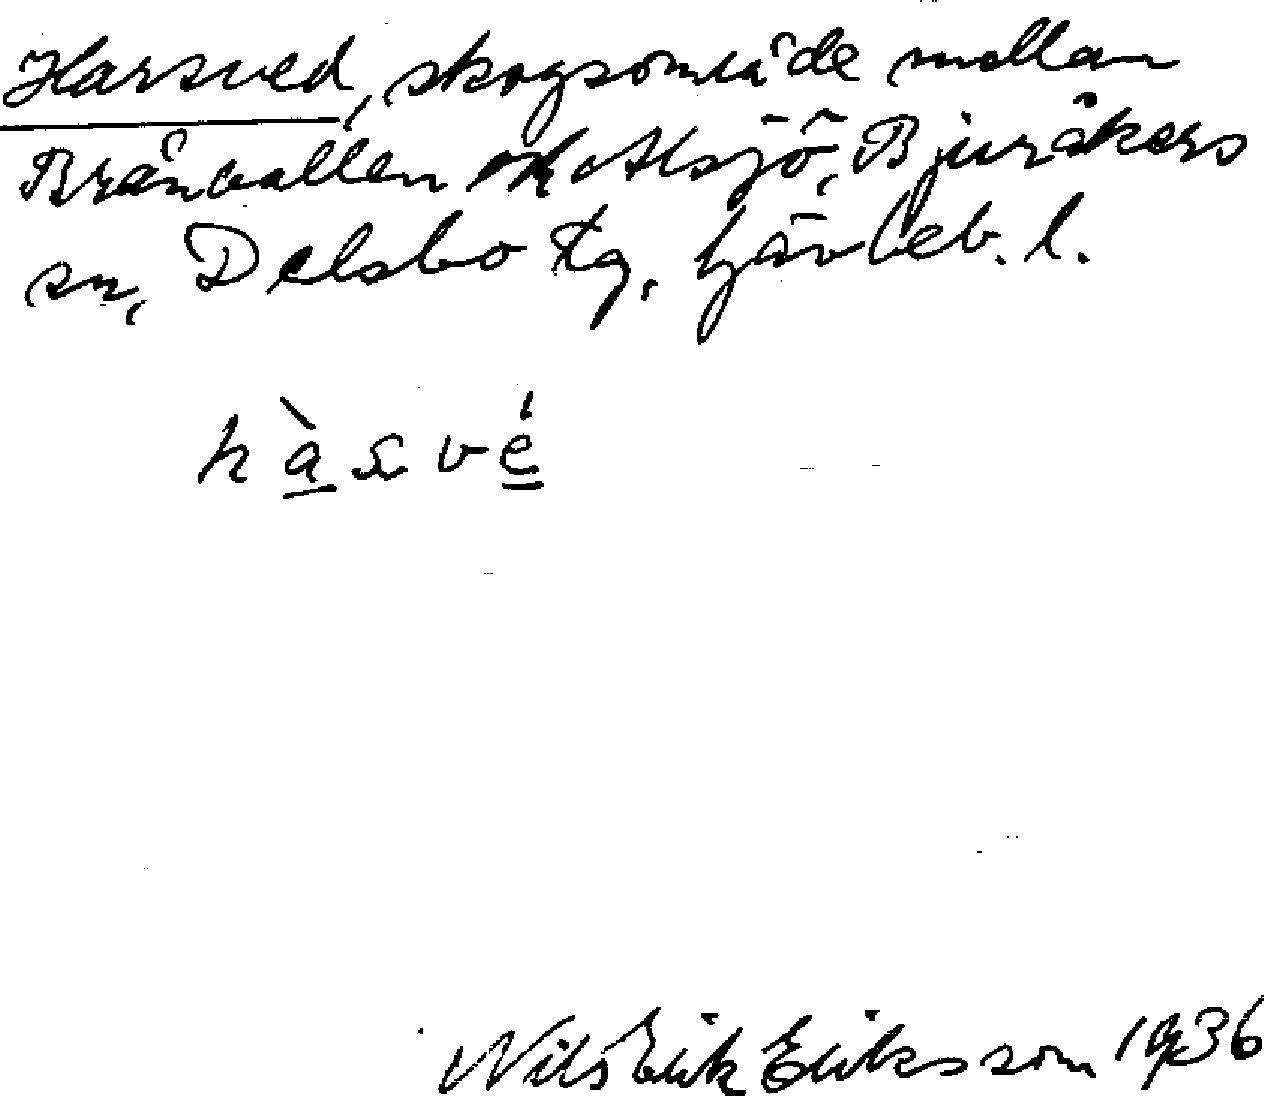 Harsved, skogsområde mellan
Brånvallen och Alsjö, Bjuråkers
sn, Delsbo tg. Gävleb. l.
hàsvé
Nils Erik Eriksson 1936